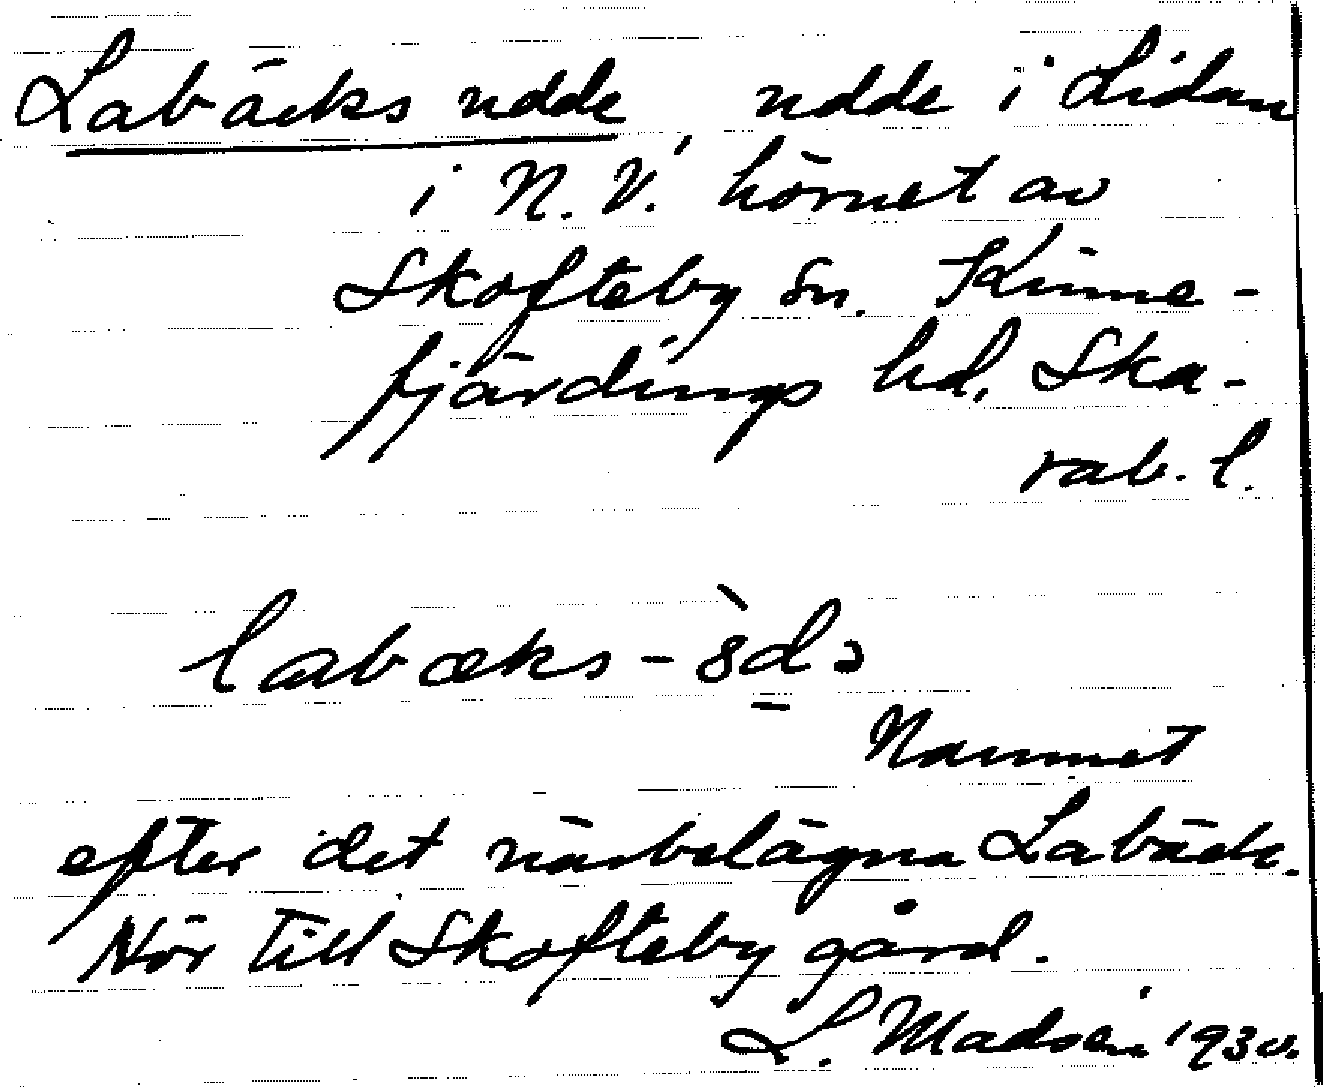 Labäcks udde, udde i Lidan
i N.V. hörnet av
Skofteby sn. Kinne-
fjärdings hd. Ska-
rab. l.
Namnet
efter det närbelägna Labäck.
Hör till Skofteby gård.
L. Madsén 1930.